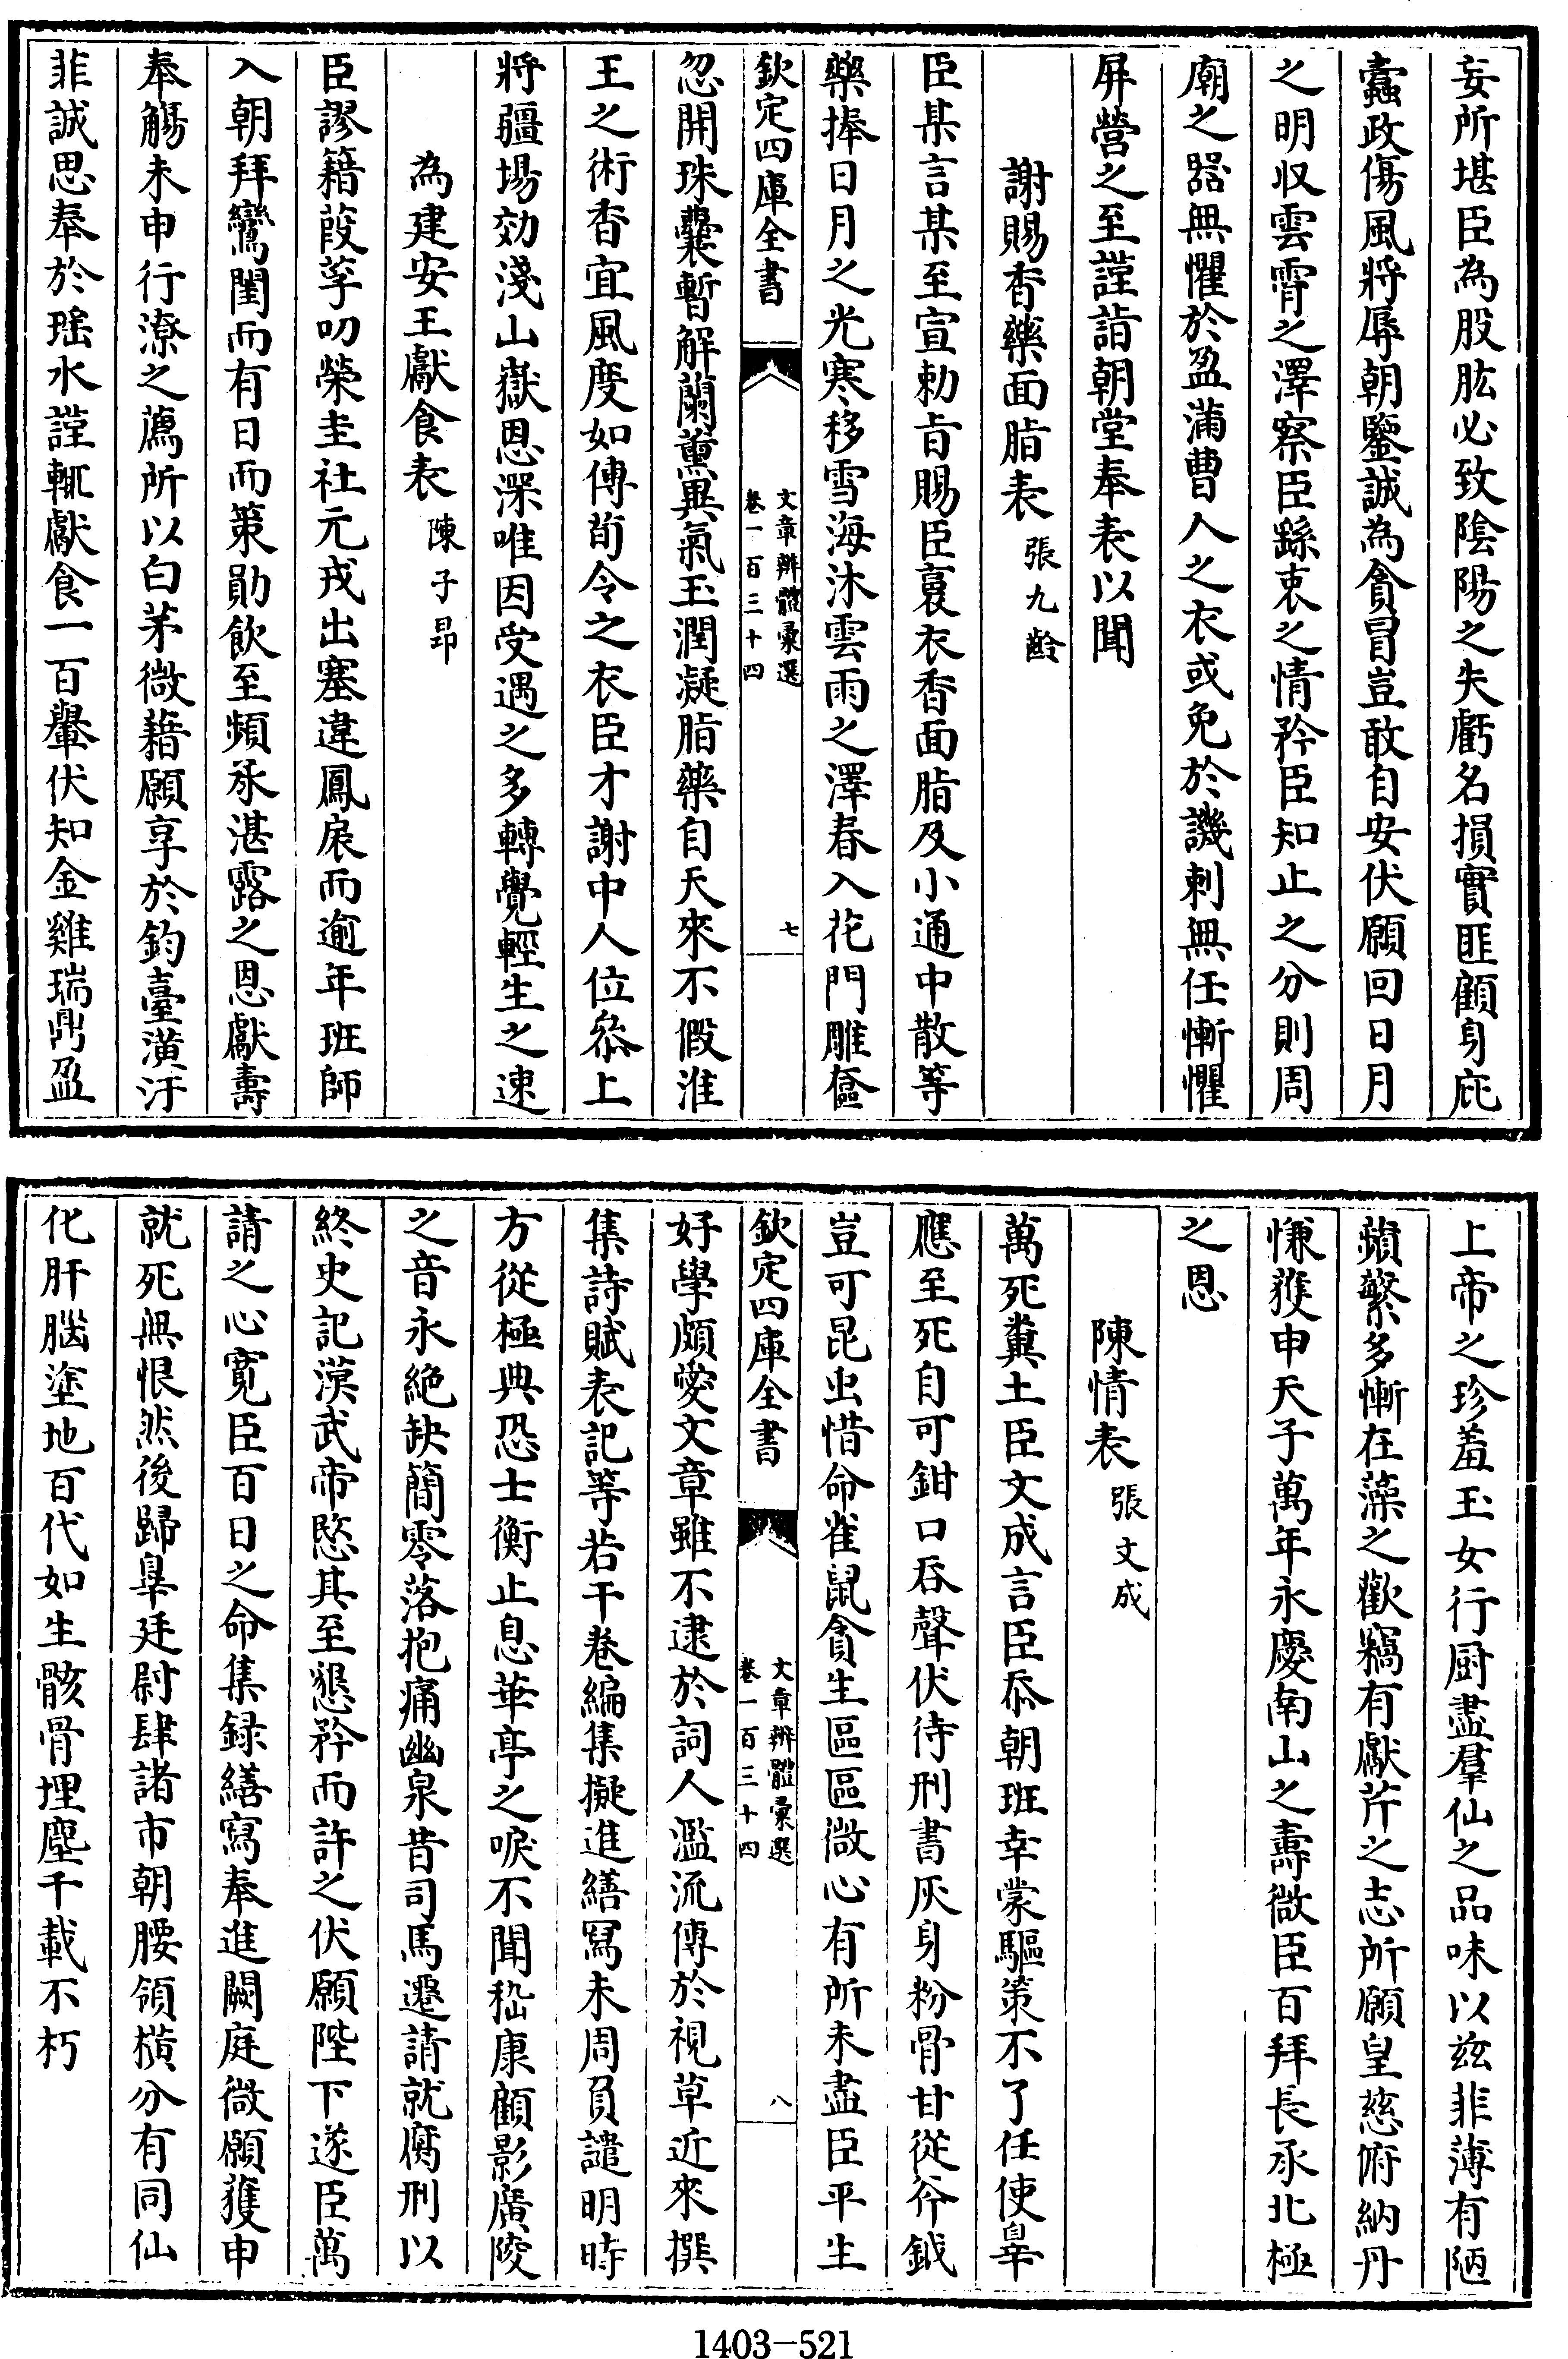 妄所堪臣為股肱必致陰陽之失虧名損實匪顧身庇
蠧政傷風將辱朝鑒誠為貪冒豈敢自安伏願回日月
之明収雲霄之澤察臣繇衷之情矜臣知止之分則周
廟之器無懼於盈滿曹人之衣或免於譏刺無任慚懼
屏營之至謹詣朝堂奉表以聞
謝賜香藥面脂表 張九齡
臣某言某至宣勅旨賜臣裛衣香面脂及小通中散等
藥捧日月之光寒移雪海沐雲雨之澤春入花門雕奩
欽定四庫全書 文章辨體彙選 卷一百三十四 七
忽開珠囊暫解蘭薰異氣玉潤凝脂藥自天來不假淮
王之術香宜風度如傳荀令之衣臣才謝中人位叅上
將疆場効淺山嶽恩深唯因受遇之多轉覺輕生之速
為建安王獻食表 陳子昂
臣謬籍葭莩叨榮圭社元戎出塞違鳳扆而逾年班師
入朝拜鸞闈而有日而策勛飲至頻承湛露之恩獻壽
奉觴未申行潦之薦所以白茅微藉願享於鈞臺潢汙
菲誠思奉於瑶水謹輒獻食一百轝伏知金雞瑞鼎盈
上帝之珍羞玉女行厨盡羣仙之品味以兹菲薄有陋
蘋蘩多慚在藻之歡竊有獻芹之志所願皇慈俯納丹
慊獲申天子萬年永慶南山之壽微臣百拜長承北極
之恩
陳情表 張文成
萬死糞土臣文成言臣忝朝班幸蒙驅策不了任使辠
應至死自可鉗口吞聲伏待刑書灰身粉骨甘從斧鉞
豈可昆虫惜命雀鼠貪生區區微心有所未盡臣平生
欽定四庫全書 文章辨體彙選 卷一百三十四 八
好學頗愛文章雖不逮於詞人濫流傳於視草近來撰
集詩賦表記等若干卷編集擬進繕冩未周負譴明時
方從極典恐士衡止息華亭之唳不聞嵇康顧影廣陵
之音永絶缺簡零落抱痛幽泉昔司馬遷請就腐刑以
終史記漢武帝愍其至懇矜而許之伏願陛下遂臣萬
請之心寛臣百日之命集録繕寫奉進闕庭微願獲申
就死無恨然後歸辠廷尉肆諸市朝腰領横分有同仙
化肝腦塗地百代如生骸骨埋塵千載不朽
1403-521